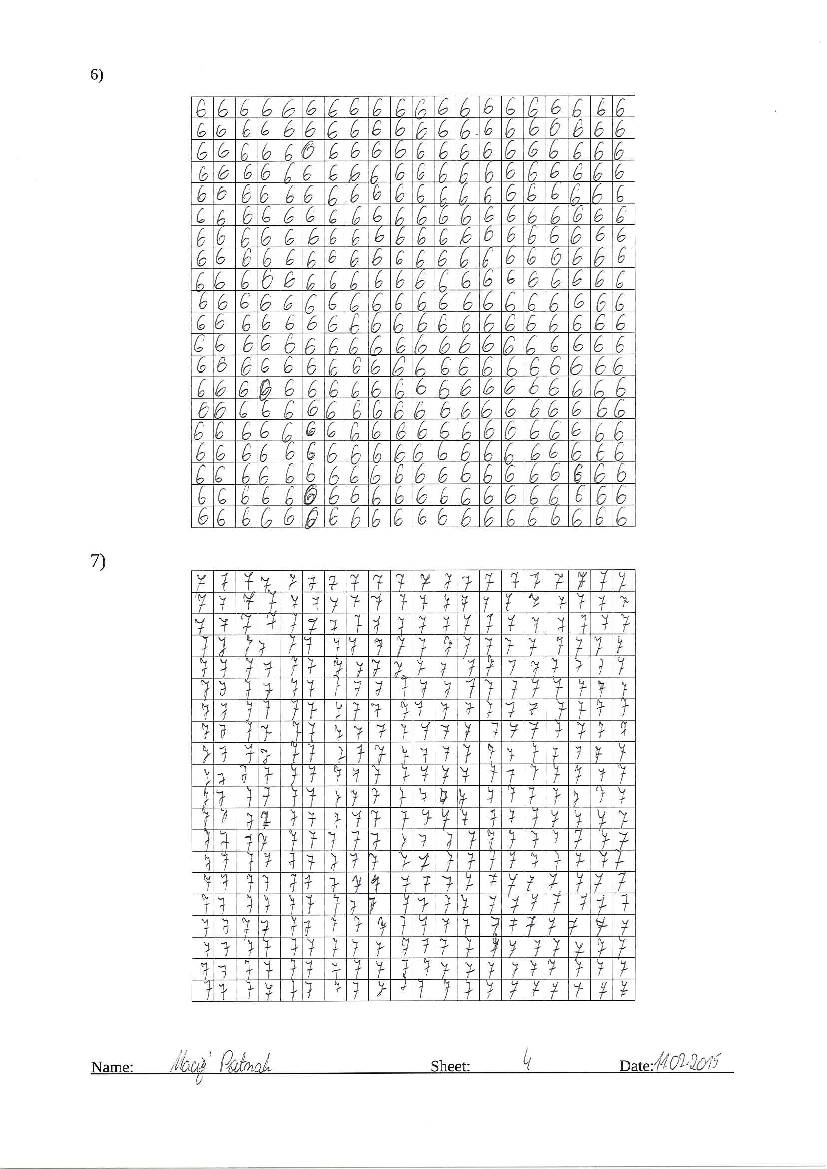 6)
6 6 6 6 6 6 6 6 6 6 6 6 6 6 6 6 6 6 6 6
6 6 6 6 6 6 6 6 6 6 6 6 6 6 6 6 6 6 6 6
6 6 6 6 6 6 6 6 6 6 6 6 6 6 6 6 6 6 6 6
6 6 6 6 6 6 6 6 6 6 6 6 6 6 6 6 6 6 6 6
6 6 6 6 6 6 6 6 6 6 6 6 6 6 6 6 6 6 6 6
6 6 6 6 6 6 6 6 6 6 6 6 6 6 6 6 6 6 6 6
6 6 6 6 6 6 6 6 6 6 6 6 6 6 6 6 6 6 6 6
6 6 6 6 6 6 6 6 6 6 6 6 6 6 6 6 6 6 6 6
6 6 6 6 6 6 6 6 6 6 6 6 6 6 6 6 6 6 6 6
6 6 6 6 6 6 6 6 6 6 6 6 6 6 6 6 6 6 6 6
6 6 6 6 6 6 6 6 6 6 6 6 6 6 6 6 6 6 6 6
6 6 6 6 6 6 6 6 6 6 6 6 6 6 6 6 6 6 6 6
6 6 6 6 6 6 6 6 6 6 6 6 6 6 6 6 6 6 6 6
6 6 6 6 6 6 6 6 6 6 6 6 6 6 6 6 6 6 6 6
6 6 6 6 6 6 6 6 6 6 6 6 6 6 6 6 6 6 6 6
6 6 6 6 6 6 6 6 6 6 6 6 6 6 6 6 6 6 6 6
6 6 6 6 6 6 6 6 6 6 6 6 6 6 6 6 6 6 6 6
6 6 6 6 6 6 6 6 6 6 6 6 6 6 6 6 6 6 6 6
6 6 6 6 6 6 6 6 6 6 6 6 6 6 6 6 6 6 6 6
6 6 6 6 6 6 6 6 6 6 6 6 6 6 6 6 6 6 6 6
7)
7 7 7 7 7 7 7 7 7 7 7 7 7 7 7 7 7 7 7 7
7 7 7 7 7 7 7 7 7 7 7 7 7 7 7 7 7 7 7 7
7 7 7 7 7 7 7 7 7 7 7 7 7 7 7 7 7 7 7 7
7 7 7 7 7 7 7 7 7 7 7 7 7 7 7 7 7 7 7 7
7 7 7 7 7 7 7 7 7 7 7 7 7 7 7 7 7 7 7 7
7 7 7 7 7 7 7 7 7 7 7 7 7 7 7 7 7 7 7 7
7 7 7 7 7 7 7 7 7 7 7 7 7 7 7 7 7 7 7 7
7 7 7 7 7 7 7 7 7 7 7 7 7 7 7 7 7 7 7 7
7 7 7 7 7 7 7 7 7 7 7 7 7 7 7 7 7 7 7 7
7 7 7 7 7 7 7 7 7 7 7 7 7 7 7 7 7 7 7 7
7 7 7 7 7 7 7 7 7 7 7 7 7 7 7 7 7 7 7 7
7 7 7 7 7 7 7 7 7 7 7 7 7 7 7 7 7 7 7 7
7 7 7 7 7 7 7 7 7 7 7 7 7 7 7 7 7 7 7 7
7 7 7 7 7 7 7 7 7 7 7 7 7 7 7 7 7 7 7 7
7 7 7 7 7 7 7 7 7 7 7 7 7 7 7 7 7 7 7 7
7 7 7 7 7 7 7 7 7 7 7 7 7 7 7 7 7 7 7 7
7 7 7 7 7 7 7 7 7 7 7 7 7 7 7 7 7 7 7 7
7 7 7 7 7 7 7 7 7 7 7 7 7 7 7 7 7 7 7 7
7 7 7 7 7 7 7 7 7 7 7 7 7 7 7 7 7 7 7 7
7 7 7 7 7 7 7 7 7 7 7 7 7 7 7 7 7 7 7 7
Name: Sheet: 4 Date: 11.02.2015